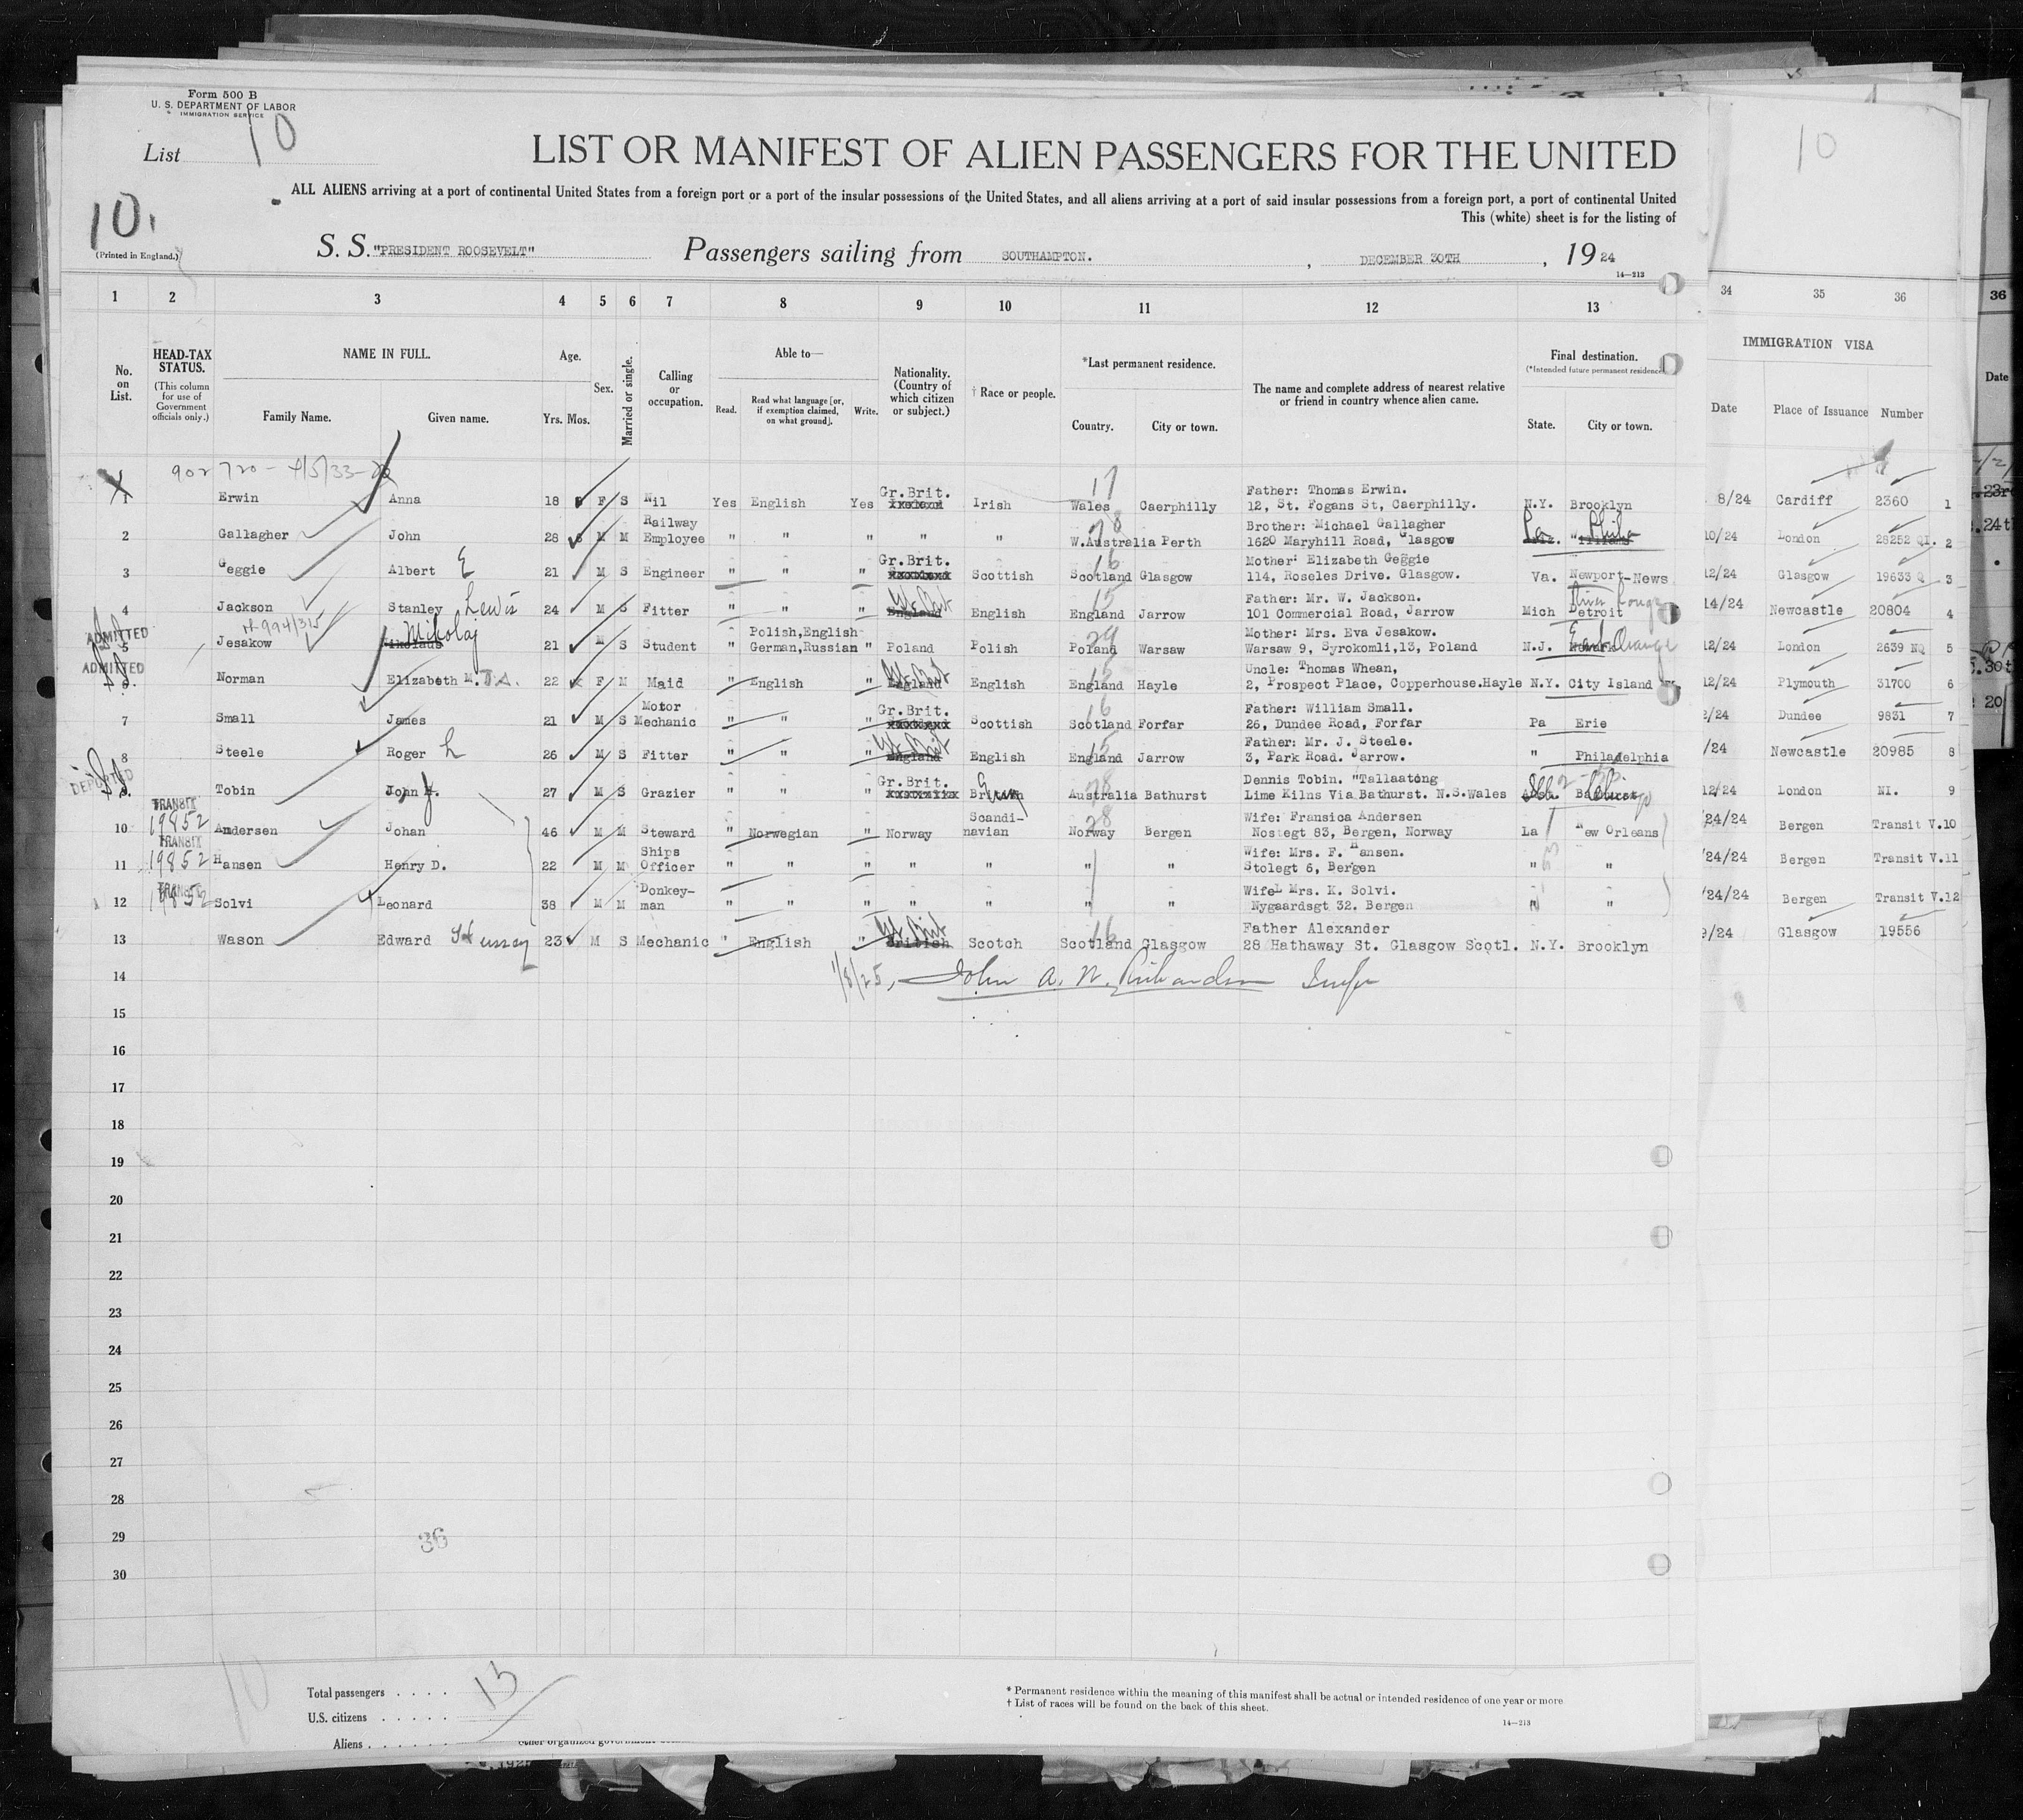 Form 500 B
U. S. DEPARTMENT OF LABOR
IMMIGRATION SERVICE
List 10
LIST OR MANIFEST OF ALIEN PASSENGERS FOR THE UNITED
10
ALL ALIENS arriving at a port of continental United States from a foreign port or a port of the insular possessions of the United States, and all aliens arriving at a port of said insular possessions from a foreign port, a port of continental United
This (white) sheet is for the listing of
10.
(Printed in England.)
S. S. "PRESIDENT ROOSEVELT" Passengers sailing from SOUTHAMPTON. , DECEMBER 30TH , 19 24
14—213
1 2 3 4 5 6 7 8 9 10 11 12 13 34 35 36 36
No. on List.
HEAD-TAX STATUS.
(This column for use of Government officials only.)
NAME IN FULL.
Family Name. Given name.
Age.
Yrs. Mos.
Sex.
Married or single.
Calling or occupation.
Able to—
Read. Read what language [or, if exemption claimed, on what ground]. Write.
Nationality. (Country of which citizen or subject.)
† Race or people.
*Last permanent residence.
Country. City or town.
The name and complete address of nearest relative or friend in country whence alien came.
Final destination.
(*Intended future permanent residence
State. City or town.
IMMIGRATION VISA
Date Place of Issuance Number Date
902720 - 4/5/33
1 Erwin Anna 18 F S Nil Yes English Yes Gr.Brit. Irish 17 Wales Caerphilly Father: Thomas Erwin. 12, St. Fogans St, Caerphilly. N.Y. Brooklyn 8/24 Cardiff 2360 1
2 Gallagher John 28 M M Railway Employee " " " " " W.Australia Perth Brother: Michael Gallagher 1620 Maryhill Road, Glasgow Pa. Phila 10/24 London 28252 QI. 2
3 Geggie Albert E 21 M S Engineer " " " Gr.Brit. Scottish 16 Scotland Glasgow Mother: Elizabeth Geggie 114, Roseles Drive. Glasgow. Va. Newport-News 12/24 Glasgow 19633 Q 3
4 Jackson Stanley Lewis 24 M S Fitter " " " Gt Brit England English 15 England Jarrow Father: Mr. W. Jackson. 101 Commercial Road, Jarrow Mich Detroit River Rouge 14/24 Newcastle 20804 4
ADMITTED
5 Jesakow Mikolaj 21 M S Student " Polish,English German,Russian " Poland Polish 29 Poland Warsaw Mother: Mrs. Eva Jesakow. Warsaw 9, Syrokomli,13, Poland N.J. East Orange 12/24 London 2639 NQ 5
ADMITTED
6 Norman Elizabeth M. 22 F M Maid " English " Gt Brit England English 15 England Hayle Uncle: Thomas Whean, 2, Prospect Place, Copperhouse.Hayle N.Y. City Island 12/24 Plymouth 31700 6
7 Small James 21 M S Motor Mechanic " " " Gr.Brit. Scottish 16 Scotland Forfar Father: William Small. 26, Dundee Road, Forfar Pa Erie 2/24 Dundee 9831 7
8 Steele Roger L 26 M S Fitter " " " Gt Brit England English 15 England Jarrow Father: Mr. J. Steele. 3, Park Road. Jarrow. " Philadelphia /24 Newcastle 20985 8
DEPORTED
9 Tobin John J. 27 M S Grazier " " " Gr.Brit. 28 Australia Bathurst Dennis Tobin. "Tallaatong Lime Kilns Via Bathurst. N.S.Wales Ill Chicago 12/24 London NI. 9
TRANSIT 19852
10 Andersen Johan 46 M M Steward " Norwegian " Norway Scandi-navian 28 Norway Bergen Wife: Fransica Andersen Nostegt 83, Bergen, Norway La New Orleans 24/24 Bergen Transit V.10
TRANSIT 19852
11 Hansen Henry D. 22 M M Ships Officer " " " " " " " Wife: Mrs. F. Hansen. Stolegt 6, Bergen " " /24/24 Bergen Transit V.11
TRANSIT 19852
12 Solvi Leonard 38 M M Donkey-man " " " " " " " Wife: Mrs. K. Solvi. Nygaardsgt 32. Bergen " " /24/24 Bergen Transit V.12
13 Wason Edward Hussey 23 M S Mechanic " English " Gt Brit British Scotch 16 Scotland Glasgow Father Alexander 28 Hathaway St. Glasgow Scotl. N.Y. Brooklyn 9/24 Glasgow 19556
14 1/8/25, John A. N. Richardson
15
16
17
18
19
20
21
22
23
24
25
26
27
28
29
30
36
10
Total passengers . . . . 13
U.S. citizens . . . . .
Aliens . . . . . .
* Permanent residence within the meaning of this manifest shall be actual or intended residence of one year or more
† List of races will be found on the back of this sheet.
14—213